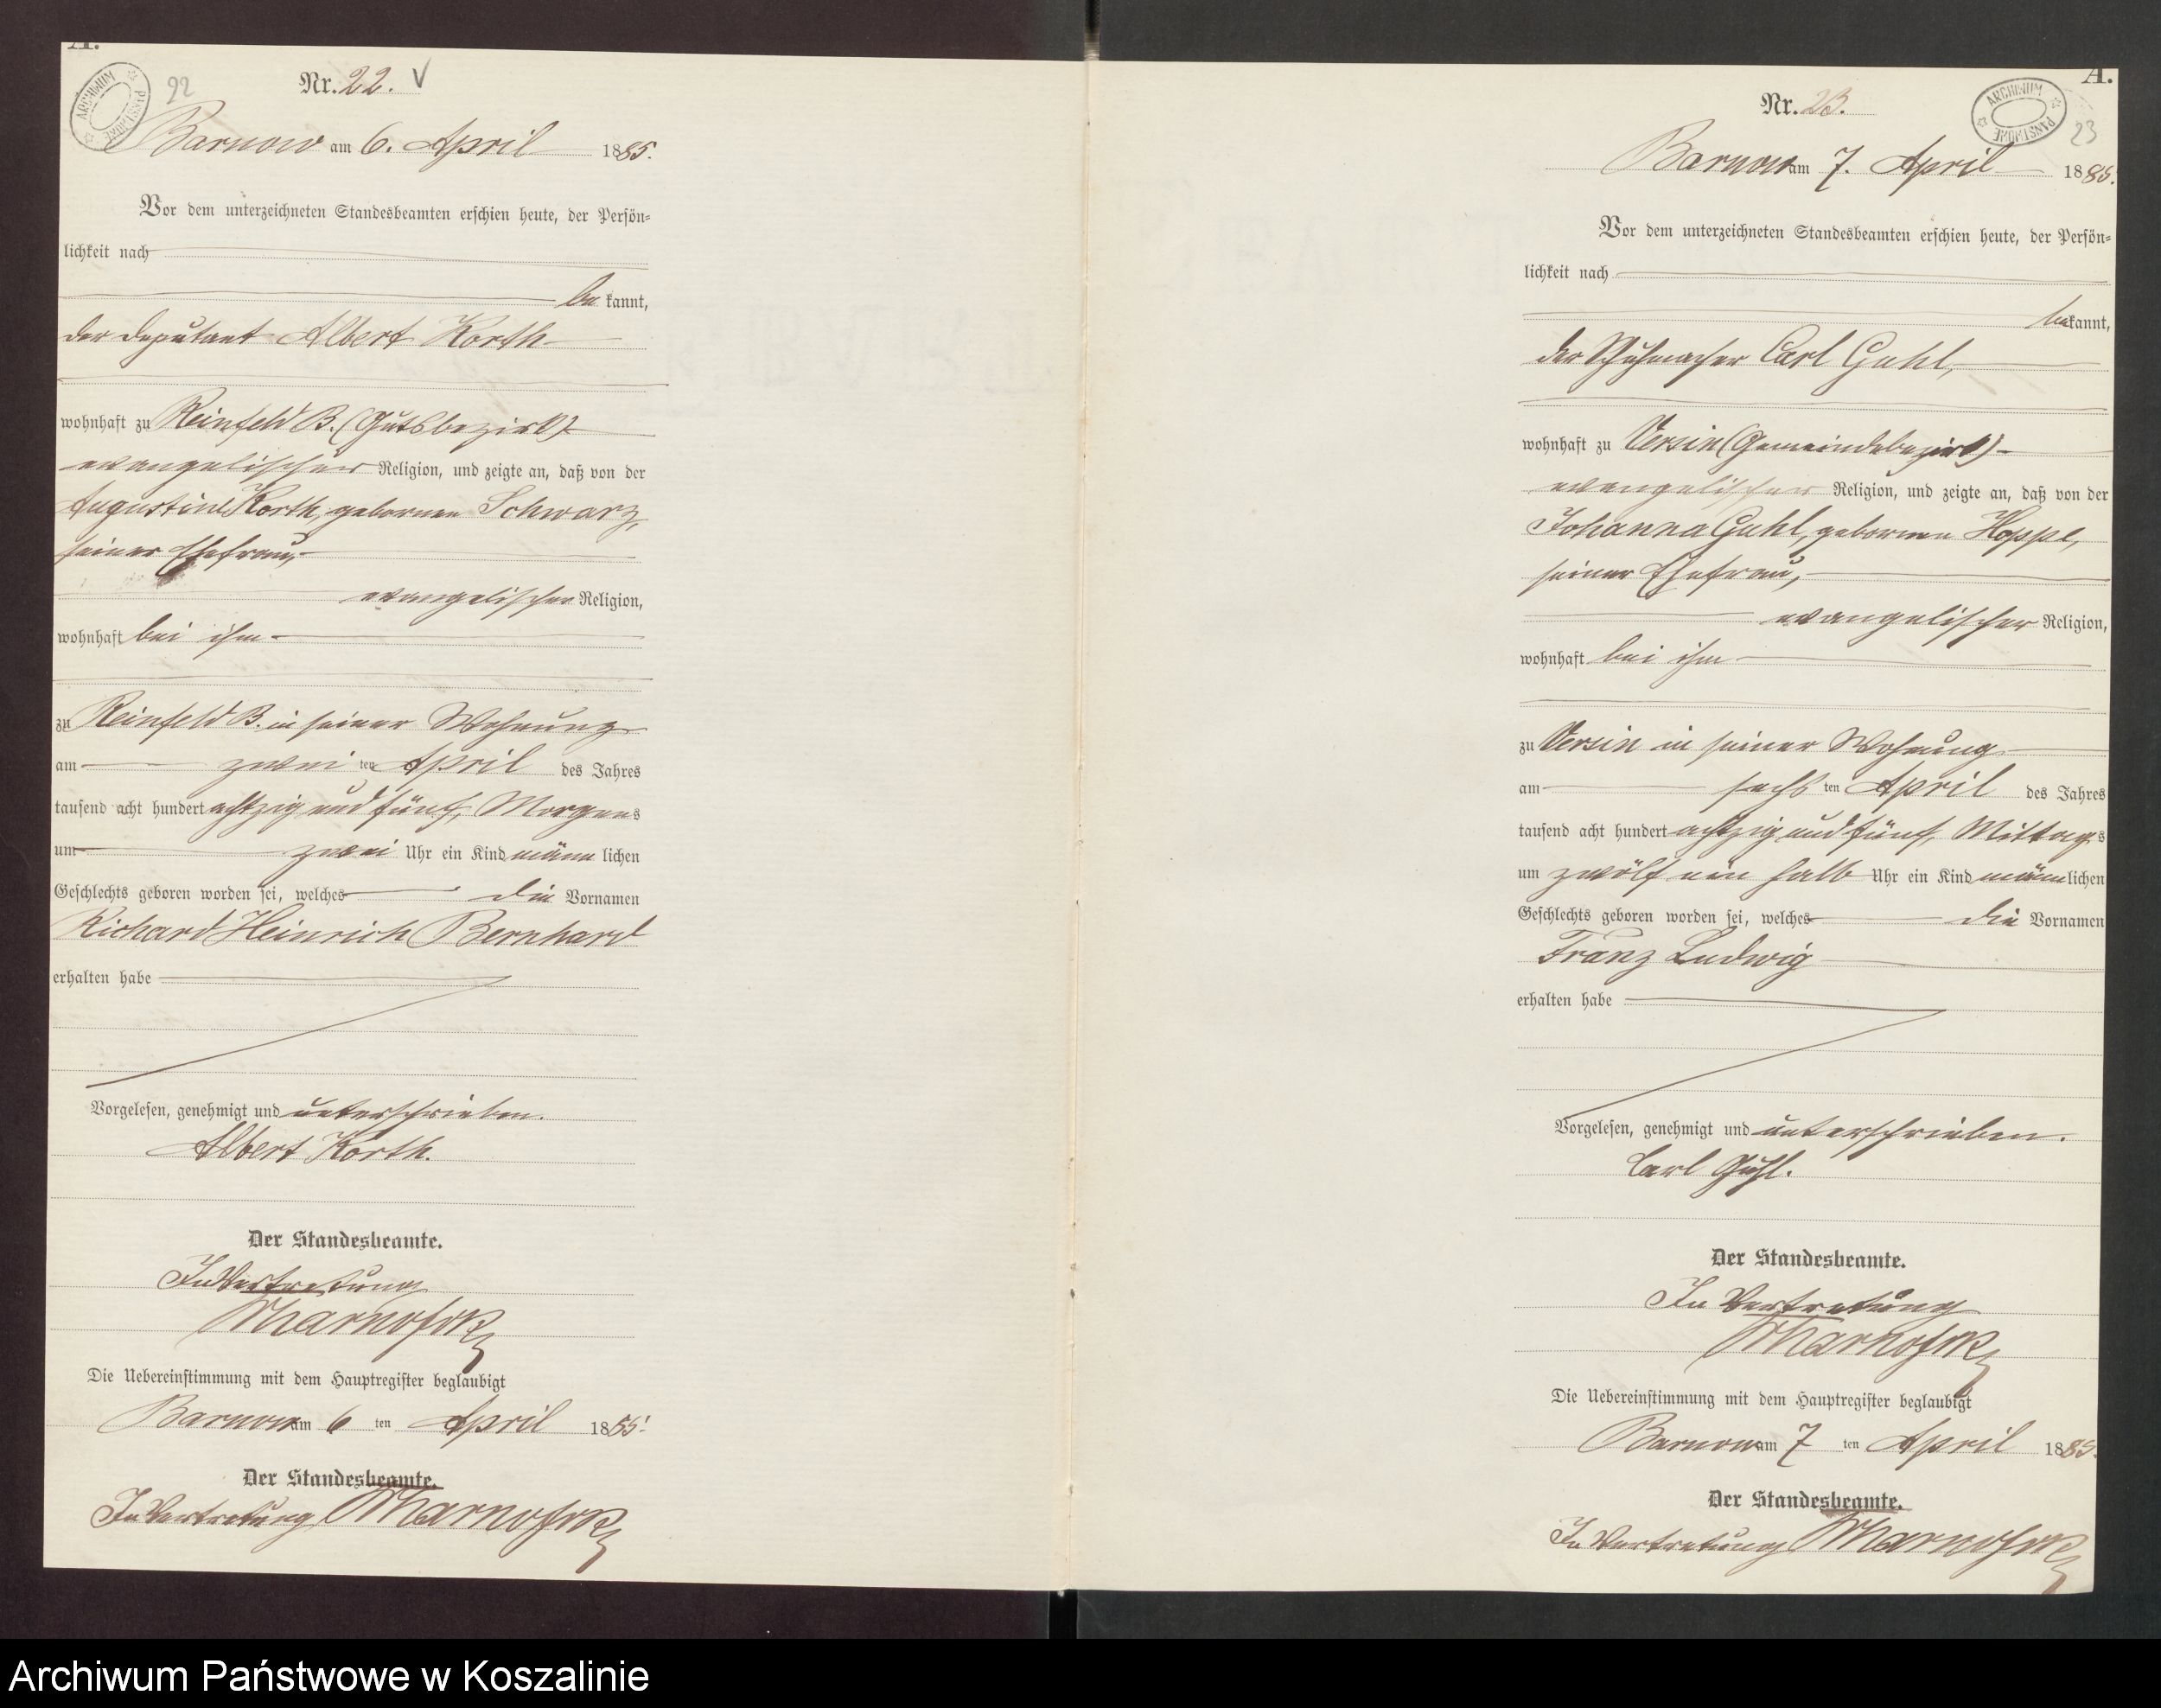 A.
ARCHIWUM PAŃSTWOWE
22
Nr. 22. V
Barnow am 6. April 1885.
Vor dem unterzeichneten Standesbeamten erschien heute, der Persön-
lichkeit nach
be kannt,
der Deputant Albert Korth
wohnhaft zu Reinfeld B. (Gutsbezirk)
evangelischer Religion, und zeigte an, daß von der
Augustine Korth, geborenen Schwarz,
seiner Ehefrau,
evangelischer Religion,
wohnhaft bei ihm
zu Reinfeld B. in seiner Wohnung
am zwei ten April des Jahres
tausend acht hundert achtzig und fünf, Morgens
um zwei Uhr ein Kind männ lichen
Geschlechts geboren worden sei, welches die Vornamen
Richard Heinrich Bernhard
erhalten habe
Vorgelesen, genehmigt und unterschrieben.
Albert Korth.
Der Standesbeamte.
In Vertretung
Die Uebereinstimmung mit dem Hauptregister beglaubigt
Barnow am 6 ten April 1885.
Der Standesbeamte.
In Vertretung
A.
ARCHIWUM PAŃSTWOWE
23
Nr. 23.
Barnow am 7. April 1885.
Vor dem unterzeichneten Standesbeamten erschien heute, der Persön-
lichkeit nach
bekannt,
der Schuhmacher Carl Guhl,
wohnhaft zu Versin (Gemeindebezirk)
evangelischer Religion, und zeigte an, daß von der
Johanna Guhl, geborenen Hoppe,
seiner Ehefrau,
evangelischer Religion,
wohnhaft bei ihm
zu Versin in seiner Wohnung
am sechs ten April des Jahres
tausend acht hundert achtzig und fünf, Mittags
um zwölf ein halb Uhr ein Kind männlichen
Geschlechts geboren worden sei, welches die Vornamen
Franz Ludwig
erhalten habe
Vorgelesen, genehmigt und unterschrieben.
Carl Guhl.
Der Standesbeamte.
In Vertretung
Die Uebereinstimmung mit dem Hauptregister beglaubigt
Barnow am 7 ten April 1885.
Der Standesbeamte.
In Vertretung
Archiwum Państwowe w Koszalinie